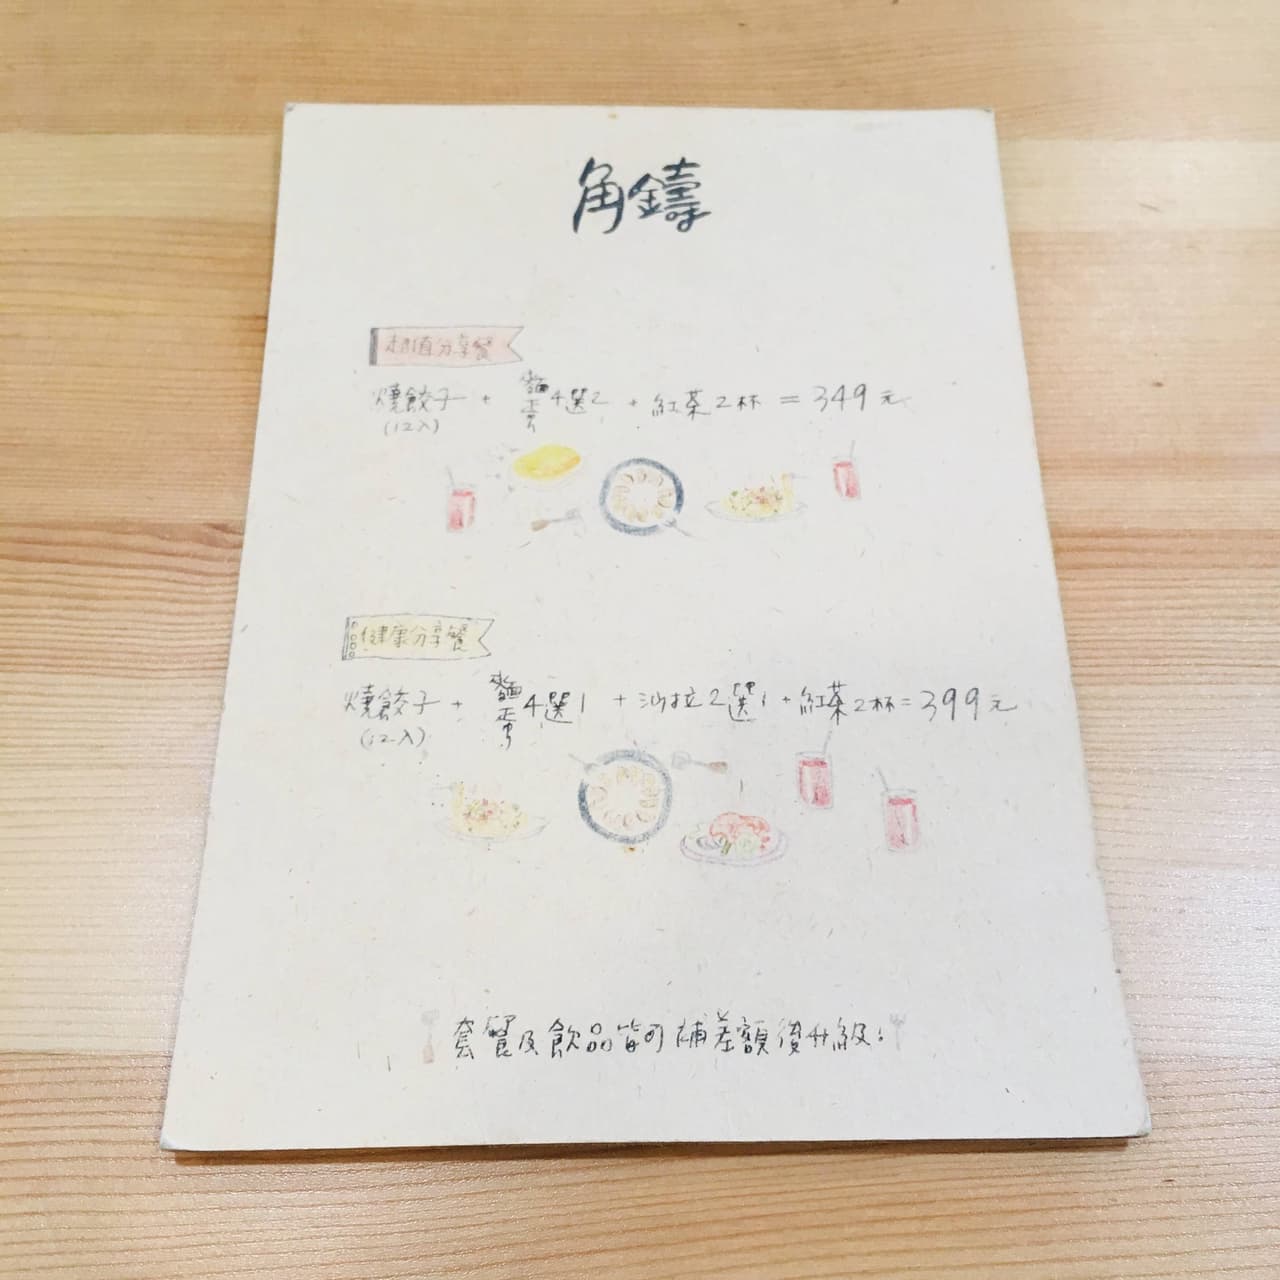 角鑄
超值分享餐
燒餃子 + 麵蛋4選2 + 紅茶2杯 = 349元
(12入)
健康分享餐
燒餃子 + 麵蛋4選1 + 沙拉2選1 + 紅茶2杯 = 399元
(12入)
套餐及飲品皆可補差額後升級!